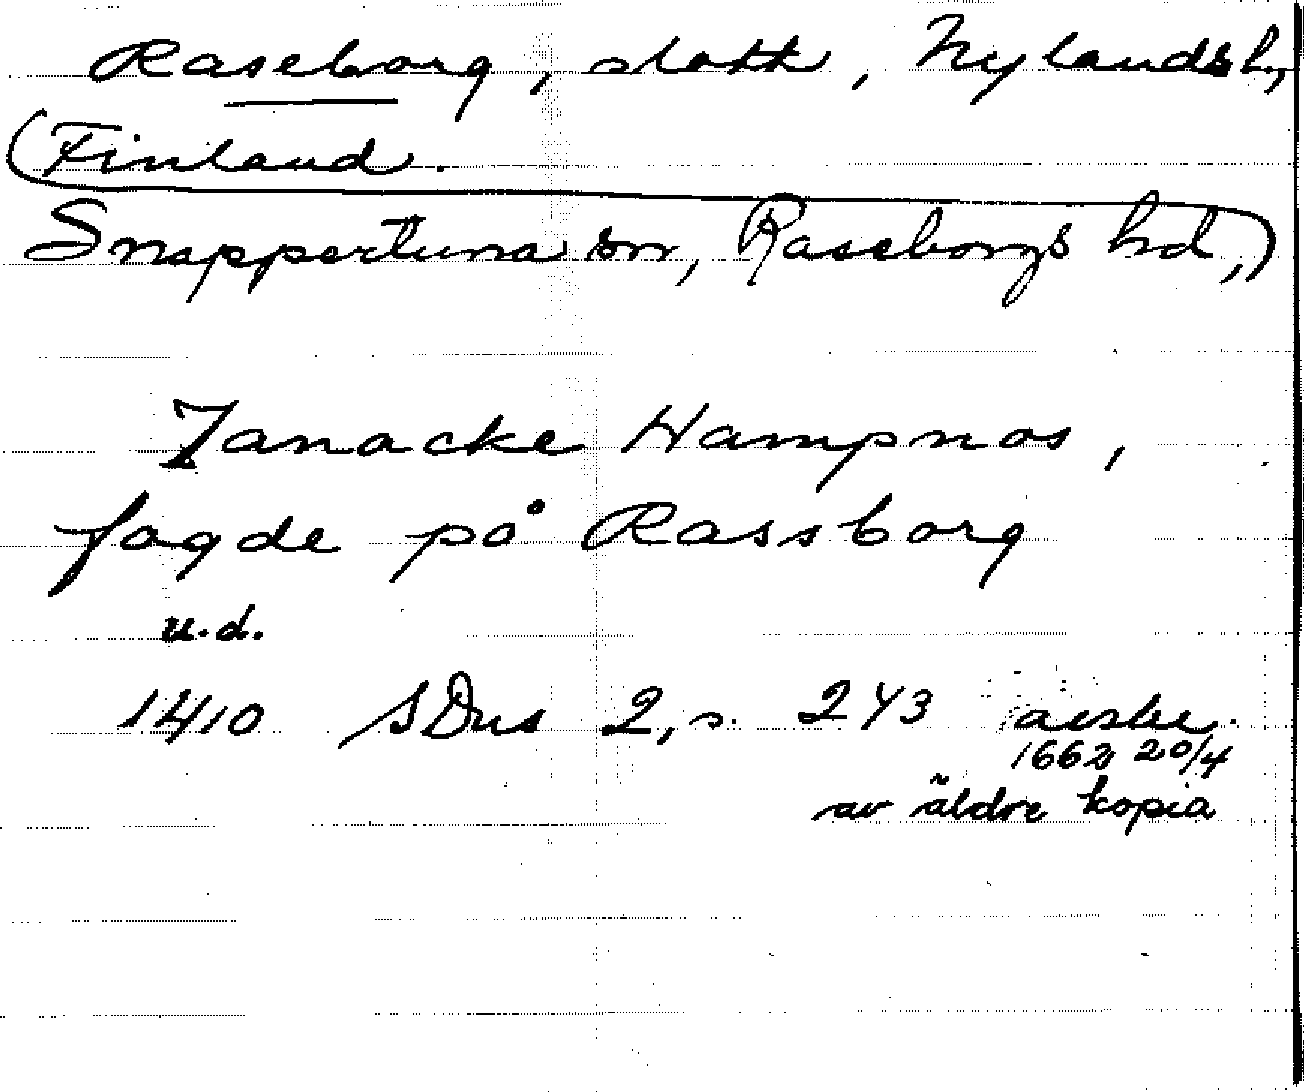 Raseborg, slott, Nylands l,
(Finland.
Snappertuna sn, Raseborgs hd,)
Tanacke Hampnos,
fogde på Rassborg
u.d.
1410 SDns 2, s. 243 avskr.
1662 20/4
av äldre kopia